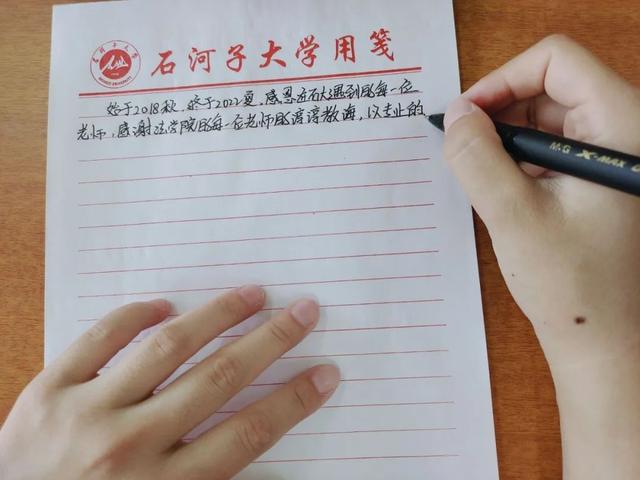 石河子大学用笺
始于2018秋,终于2022夏,感恩在石大遇到的每一位
老师,感谢法学院的每一位老师的谆谆教诲,以专业的
M&G X-MAX